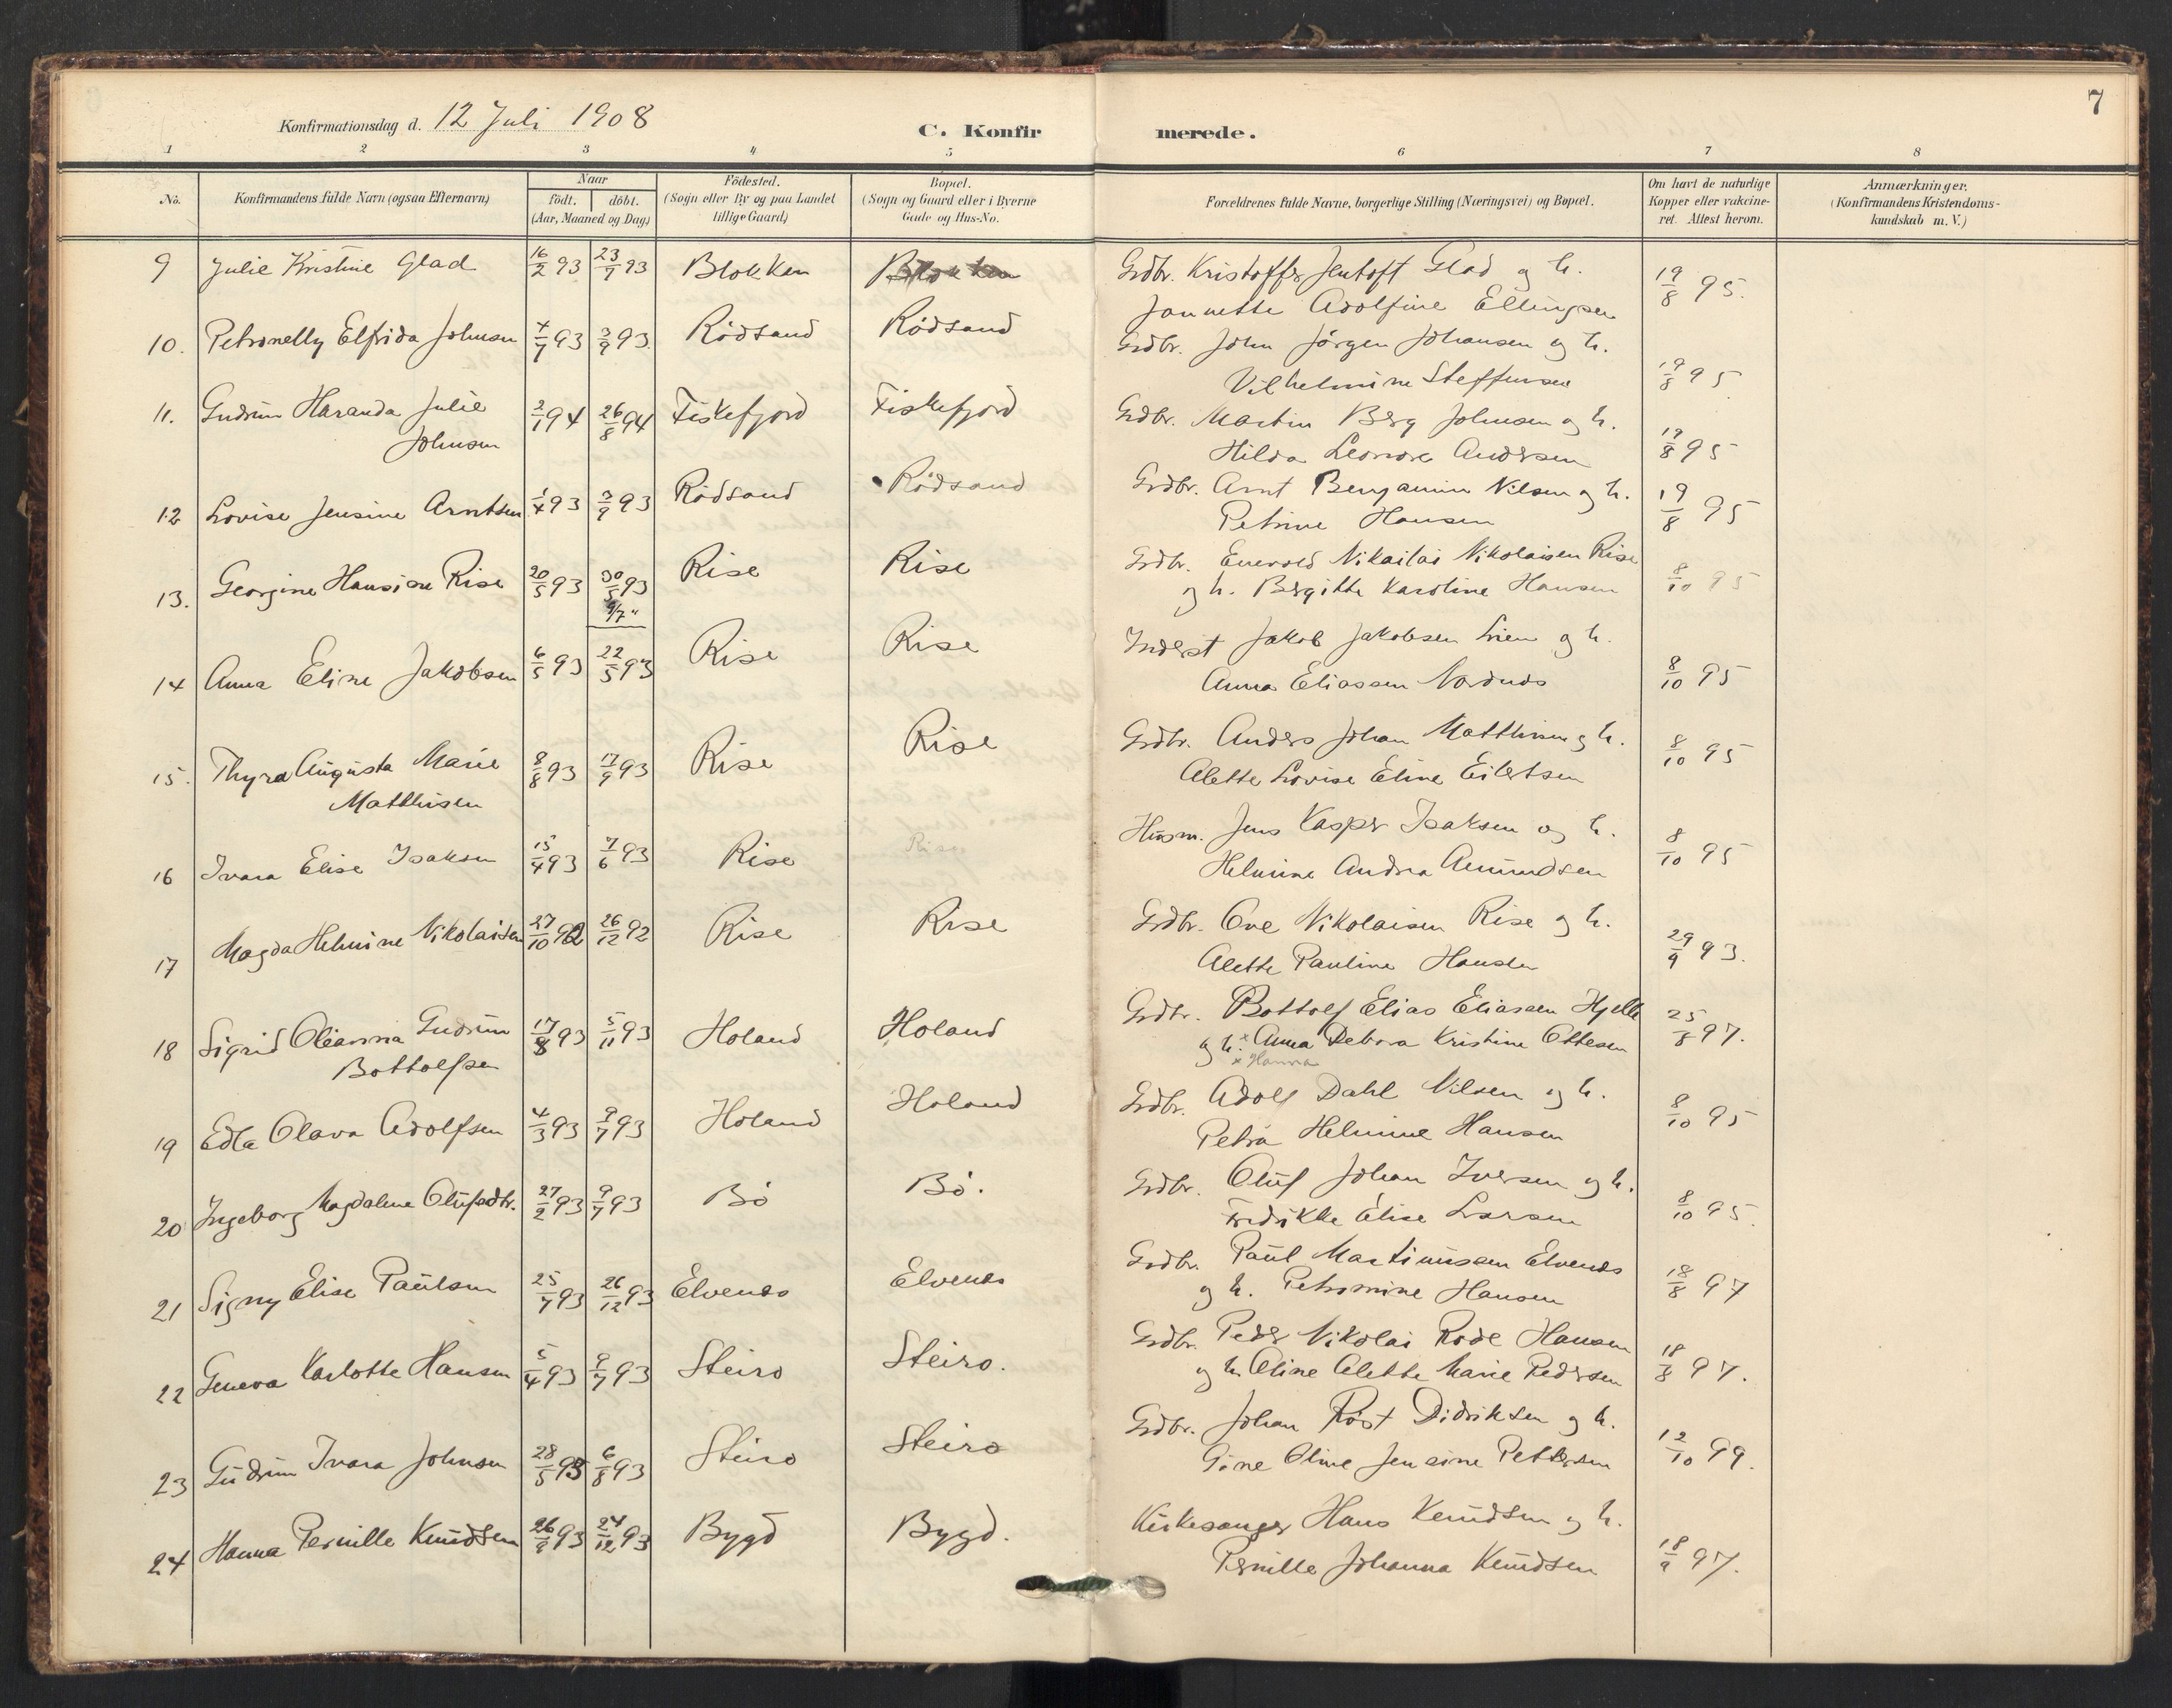 7
Konfirmationsdag d. 12 Juli 1908
C. Konfirmerede.
1 2 3 4 5 6 7 8
No. Konfirmandens fulde Navn (ogsaa Efternavn) Naar födt. döbt. (Aar, Maaned og Dag) Födested. (Sogn eller By og paa Landet tillige Gaard) Bopæl. (Sogn og Gaard eller i Byerne Gade og Hus-No. Forældrenes fulde Navne, borgerlige Stilling (Næringsvei) og Bopæl. Om havt de naturlige Kopper eller vakcineret. Attest herom. Anmærkninger. (Konfirmandens Kristendomskundskab m. V.)
9 Julie Kristine Glad 16/2 93 23/7 93 Blokken Blokken Grdbr. Kristoffer Jentoft Glad og h. 19/8 95.
Jannette Adolfine Ellingsen
10. Petronelly Elfrida Johnsen 4/7 93 3/9 93. Rödsand Rödsand Grdbr. John Jörgen Johansen og h.
Vilhelmine Steffensen 19/8 95
11. Gudrun Haranda Julie 2/1 94 26/8 94 Fiskefjord Fiskefjord Grdbr. Martin Berg Johnsen og h.
Johnsen Hilda Leonore Andersen 19/8 95
12 Lovise Jensine Arntsen 1/4 93 3/9 93 Rödsand Rödsand Grdbr. Arnt Benjamin Nilsen og h. 19/8 95
Petrine Hansen
13. Georgine Hansine Rise 20/5 93 30/5 93 Rise Rise Grdbr. Enevold Nikailai Nikolaisen Rise
9/7 " og h. Bergitte Karoline Hansen 8/10 95
14 Anna Eline Jakobsen 6/5 93 22/5 93 Rise Rise Inderst Jakob Jakobsen Lien og h.
Anna Eliassen Nordnes 8/10 95
15. Thyra Augusta Marie 8/8 93 17/9 93 Rise Rise Grdbr. Anders Johan Matthisen og h. 8/10 95
Matthisen Alette Lovise Eline Eilertsen
16 Ivara Elise Isaksen 15/4 93 7/6 93 Rise Rise Husm. Jens Kasper Isaksen og h. 8/10 95
Helmine Andrea Amundsen
17 Magda Helmine Nikolaisen 27/10 92 26/12 92 Rise Rise Grdbr. Ove Nikolaisen Rise og h.
Alette Pauline Hansen 29/9 93.
18 Sigrid Oleanna Gudrun 17/8 93 5/11 93 Holand Holand Grdbr. Bottolf Elias Eliassen Hjelle 25/8 97.
Bottolfsen og h. x Anna Debora Kristine Ottesen
x Hanna
19 Edla Olava Adolfsen 4/3 93 9/7 93 Holand Holand Grdbr. Adolf Dahl Nilsen og h. 8/10 95
Petra Helmine Hansen
20 Ingeborg Magdalene Olufsdtr. 27/2 93 9/7 93 Bö Bö. Grdbr. Oluf Johan Iversen og h.
Fredrikke Elise Larsen 8/10 95.
21 Signy Elise Paulsen 25/7 93 26/12 93 Elvenes Elvenes Grdbr. Paul Martinussen Elvenes
og h. Petromine Hansen 18/8 97
22 Geneva Karlotte Hansen 5/4 93 9/7 93 Steiro Steiro. Grdbr. Peder Nikolai Rode Hansen
og h. Oline Alette Marie Pedersen 18/8 97.
23 Gudrun Ivara Johnsen 28/5 93 6/8 93 Steiro Steiro Grdbr. Johan Röst Didriksen og h.
Gine Oline Jensine Pettersen 12/10 99.
24 Hanna Pernille Knudsen 26/9 93 24/12 93 Bygd Bygd. Kirkesanger Hans Knudsen og h.
Pernille Johanna Knudsen 18/9 97.